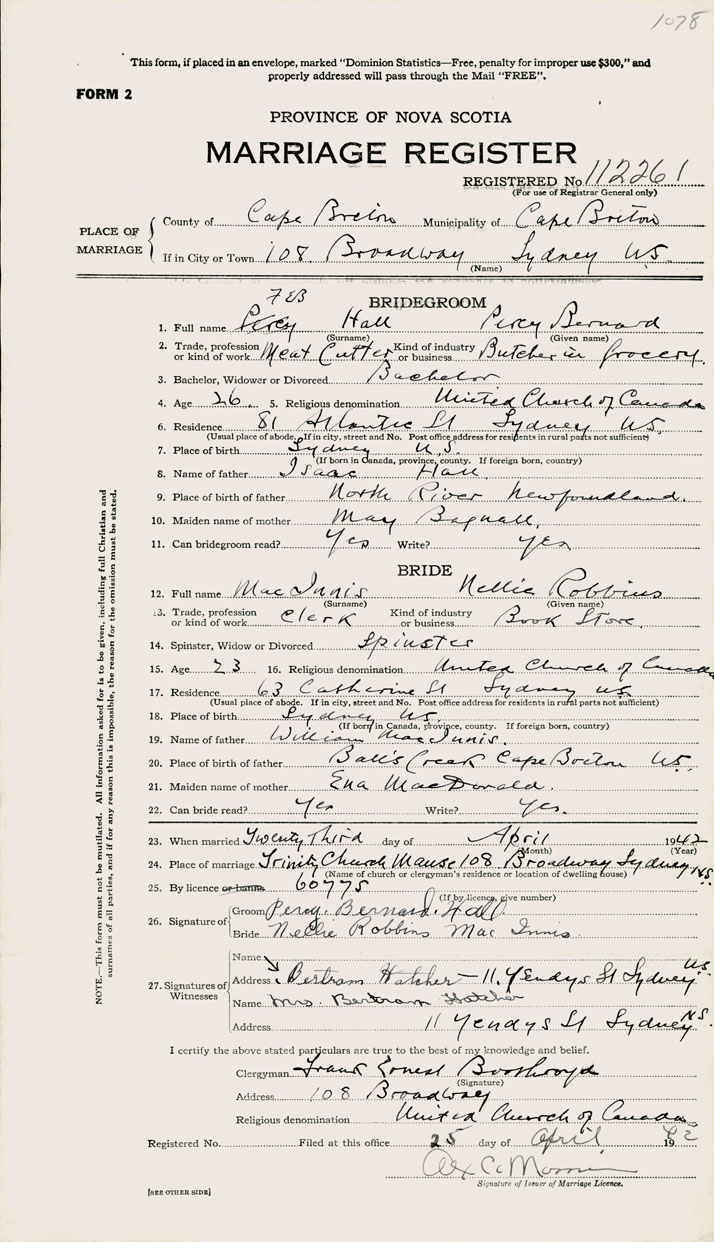 1078
This form, if placed in an envelope, marked "Dominion Statistics—Free, penalty for improper use $300," and
properly addressed will pass through the Mail "FREE".
FORM 2
PROVINCE OF NOVA SCOTIA
MARRIAGE REGISTER
REGISTERED No. 112261
(For use of Registrar General only)
PLACE OF MARRIAGE
County of Cape Breton Municipality of Cape Breton
If in City or Town 108 Broadway Sydney N.S.
(Name)
BRIDEGROOM
1. Full name Percy Hall Percy Bernard
(Surname) (Given name)
2. Trade, profession or kind of work Meat Cutter Kind of industry or business Butcher in grocery
3. Bachelor, Widower or Divorced Bachelor
4. Age 26 5. Religious denomination United Church of Canada
6. Residence 81 Atlantic St Sydney N.S.
(Usual place of abode. If in city, street and No. Post office address for residents in rural parts not sufficient)
7. Place of birth Sydney N.S.
(If born in Canada, province, county. If foreign born, country)
8. Name of father Isaac Hall
9. Place of birth of father North River Newfoundland.
10. Maiden name of mother May Bagnall.
11. Can bridegroom read? Yes Write? Yes
BRIDE
12. Full name MacInnis Nellie Robbins
(Surname) (Given name)
13. Trade, profession or kind of work Clerk Kind of industry or business Book Store.
14. Spinster, Widow or Divorced Spinster
15. Age 23 16. Religious denomination United Church of Canada
17. Residence 63 Catherine St Sydney N.S.
(Usual place of abode. If in city, street and No. Post office address for residents in rural parts not sufficient)
18. Place of birth Sydney N.S.
(If born in Canada, province, county. If foreign born, country)
19. Name of father William MacInnis.
20. Place of birth of father Ball's Creek Cape Breton N.S.
21. Maiden name of mother Ena MacDonald.
22. Can bride read? Yes Write? Yes.
23. When married Twenty Third day of April 1942
(Month) (Year)
24. Place of marriage Trinity Church Manse 108 Broadway Sydney N.S.
(Name of church or clergyman's residence or location of dwelling house)
25. By licence or banns 60775
(If by licence, give number)
26. Signature of
Groom Percy. Bernard. Hall
Bride Nellie Robbins Mac Innis.
27. Signatures of Witnesses
Name
Address Bertram Hatcher — 11. Yendys St Sydney N.S.
Name Mrs. Bertram Hatcher
Address 11 Yendys St Sydney N.S.
I certify the above stated particulars are true to the best of my knowledge and belief.
Clergyman Frank Ernest Boothroyd
(Signature)
Address 108 Broadway
Religious denomination United Church of Canada
Registered No. Filed at this office 25 day of April 1942
Signature of Issuer of Marriage Licence.
[SEE OTHER SIDE]
NOTE.—This form must not be mutilated. All information asked for is to be given, including full Christian and
surnames of all parties, and if for any reason this is impossible, the reason for the omission must be stated.